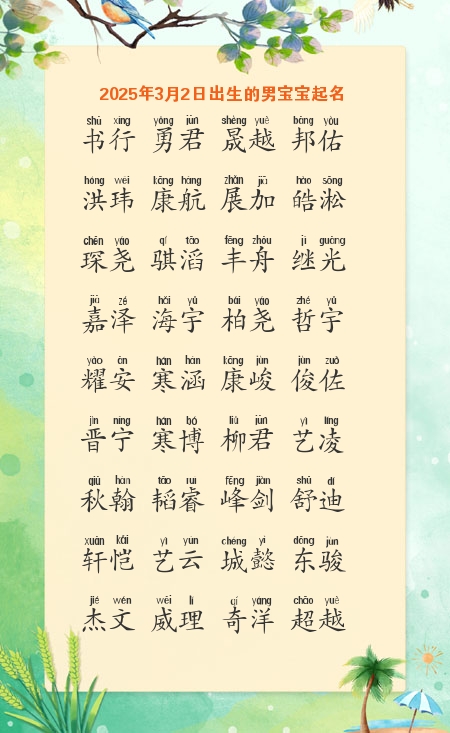 2025年3月2日出生的男宝宝起名
shū xíng yǒng jūn shèng yuè bāng yòu
书行 勇君 晟越 邦佑
hóng wěi kāng háng zhǎn jiā hào sōng
洪玮 康航 展加 皓淞
chēn yáo qí tāo fēng zhōu jì guāng
琛尧 骐滔 丰舟 继光
jiā zé hǎi yǔ bǎi yáo zhé yǔ
嘉泽 海宇 柏尧 哲宇
yào ān hán hán kāng jùn jùn zuǒ
耀安 寒涵 康峻 俊佐
jìn níng hán bó liǔ jūn yì líng
晋宁 寒博 柳君 艺凌
qiū hàn tāo ruì fēng jiàn shū dí
秋翰 韬睿 峰剑 舒迪
xuān kǎi yì yún chéng yì dōng jùn
轩恺 艺云 城懿 东骏
jié wén wēi lǐ qí yáng chāo yuè
杰文 威理 奇洋 超越